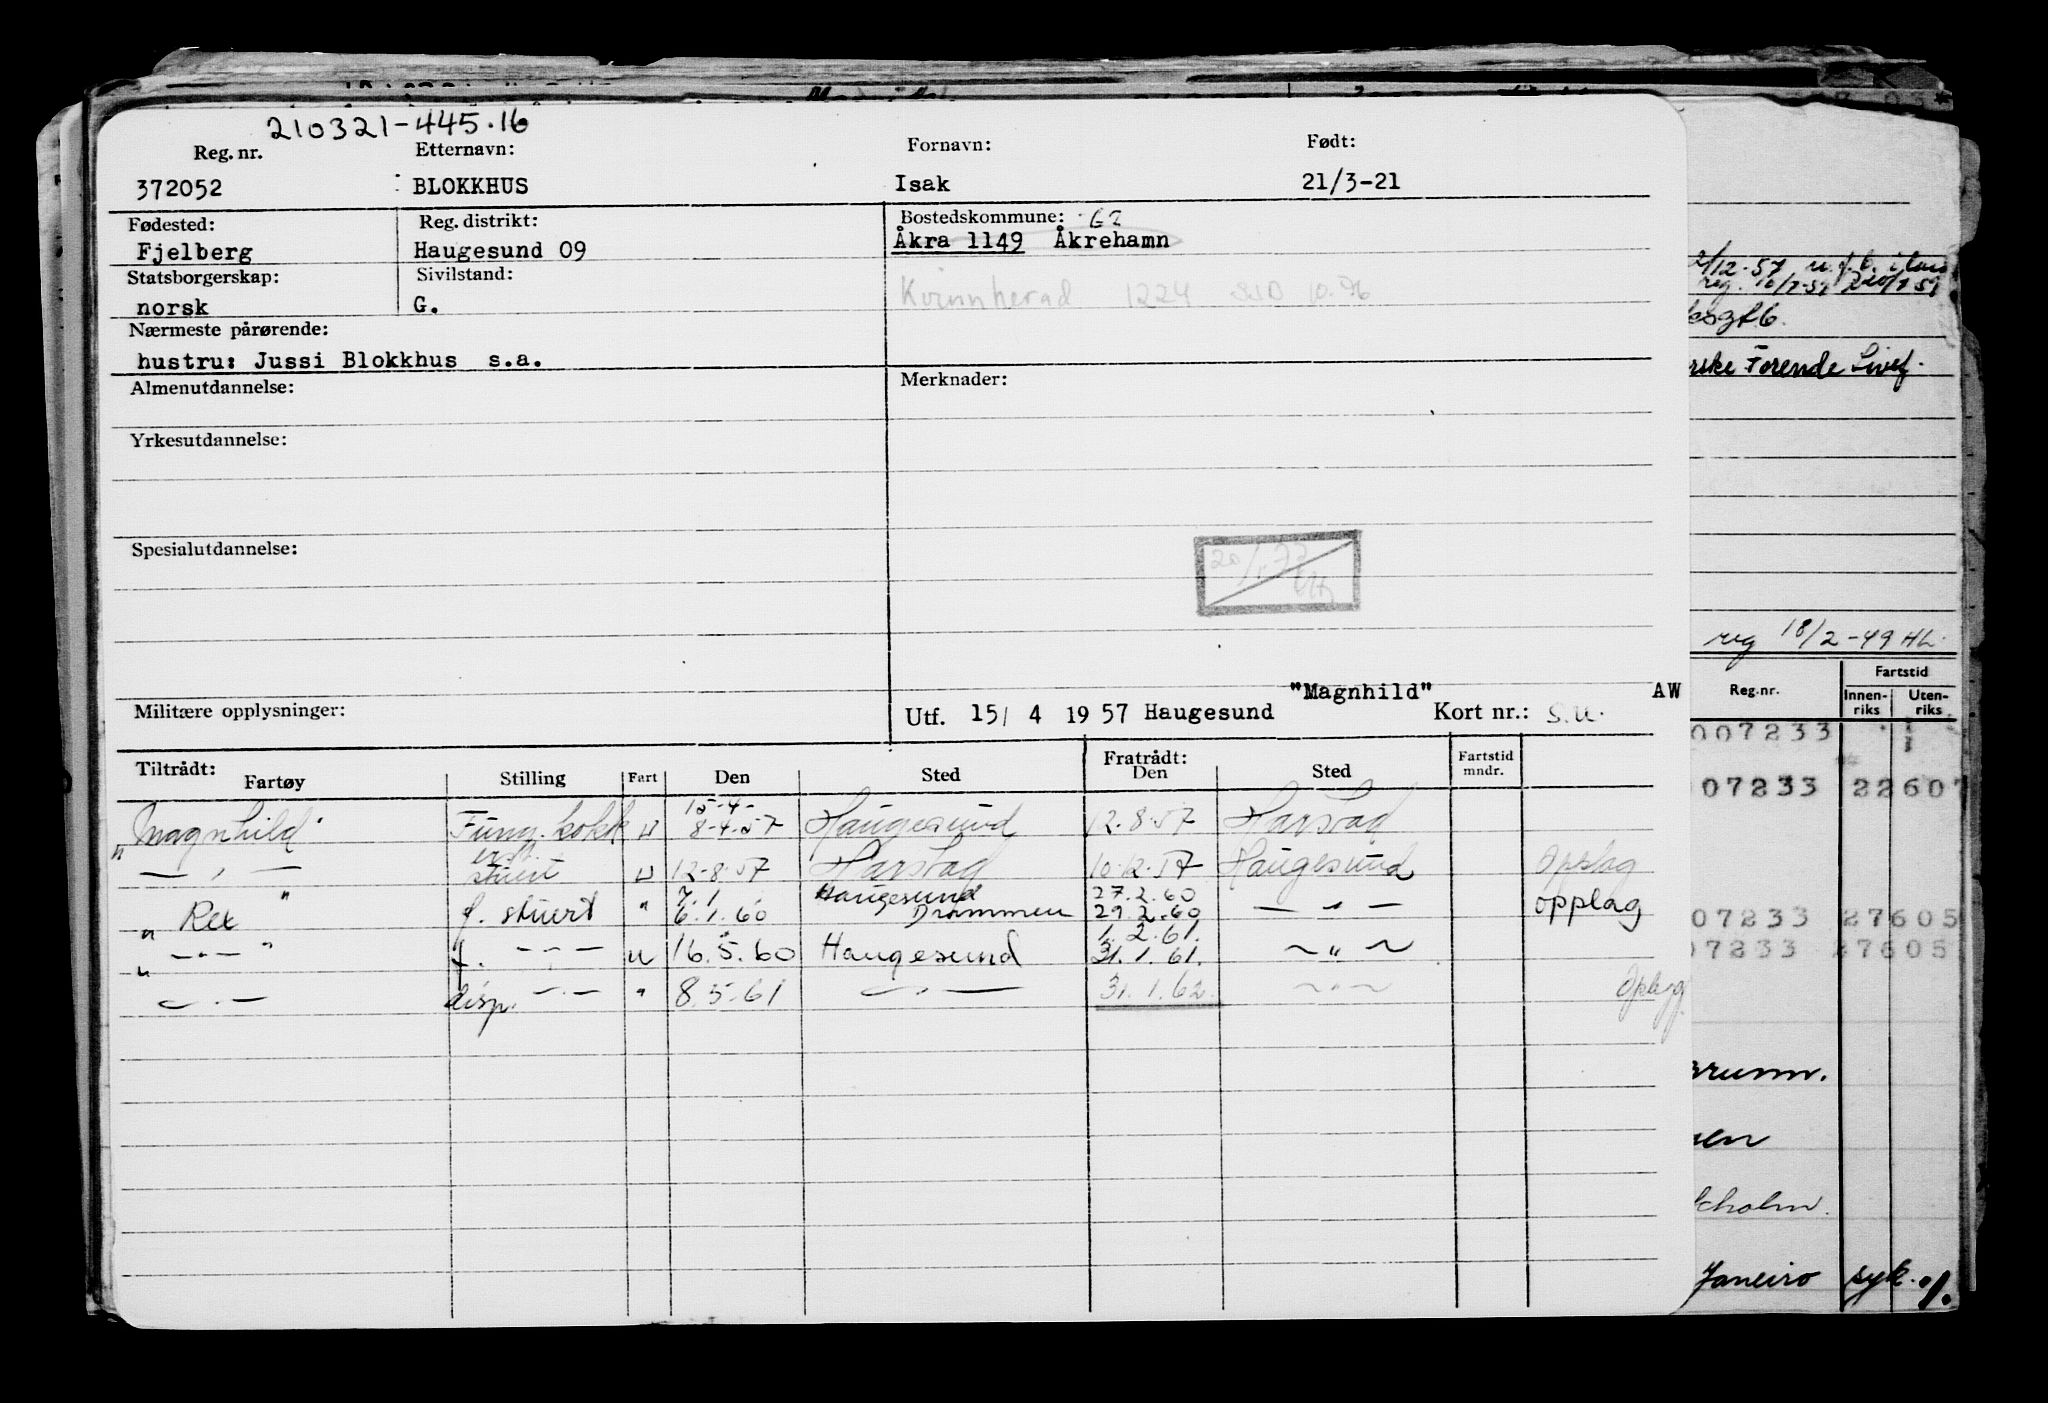 210321-445.16
Reg. nr. Etternavn: Fornavn: Født:
372052 BLOKKHUS Isak 21/3-21
Fødested: Reg. distrikt: Bostedskommune: 62
Fjelberg Haugesund 09 Åkra 1149 Åkrehamn
Statsborgerskap: Sivilstand:
norsk G. Kvinnherad 1224 SSD 10.76
Nærmeste pårørende:
hustru: Jussi Blokkhus s.a.
Almenutdannelse: Merknader:
Yrkesutdannelse:
Spesialutdannelse:
20/1 77
"Magnhild" AW
Militære opplysninger: Utf. 15/ 4 1957 Haugesund Kort nr.: S.U.
Tiltrådt: Fratrådt: Fartstid
Fartøy Stilling Fart Den Sted Den Sted mndr.
15-4-
"Magnhild" Fung. kokk U 8-4-57 Haugesund 12.8.57 Harstad
— " — stuert U 12-8-57 Harstad 10.12.57 Haugesund Opplag
7.1 Haugesund 27.2.60
"Rex" f. stuert " 6.1.60 Drammen 29.2.60 — " — opplag
1.2.61.
" — " — " f. — " — U 16.5.60 Haugesund 31.1.61. — " —
— " — disp. — " — " 8.5.61 — " — 31.1.62. — " — Opplag
2/12-57 u.f.b.
reg. 10/7-51
rske Forende Livsf.
reg 18/2-49 HL.
Fartstid
Reg.nr. Innen-riks Uten-riks
007233
007233 22607
07233 27605
07233 27605
runn.
en
kholm.
Janeiro syk.